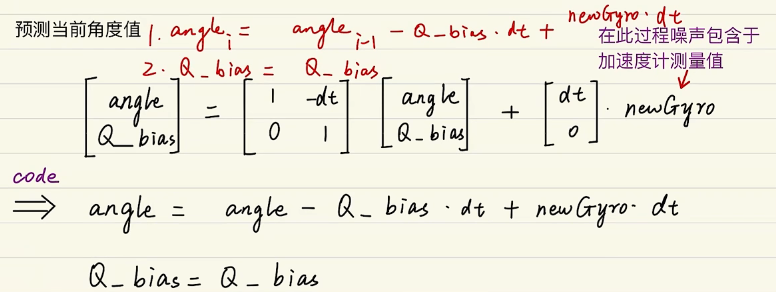 预测当前角度值 1. angle_i = angle_{i-1} - Q_bias · dt + newGyro · dt
在此过程噪声包含于
加速度计测量值
2. Q_bias = Q_bias
[angle Q_bias] = [1 -dt 0 1] [angle Q_bias] + [dt 0] · newGyro
code
⇒ angle = angle - Q_bias · dt + newGyro · dt
Q_bias = Q_bias